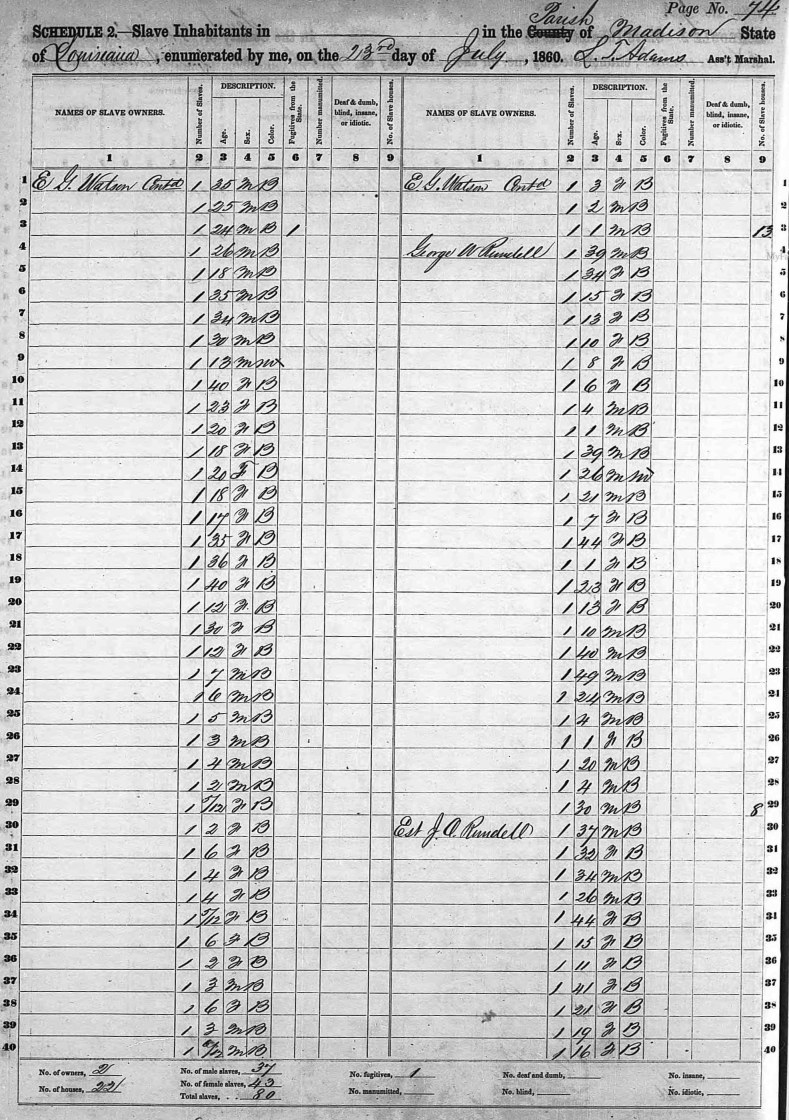 Page No. 74
SCHEDULE 2.—Slave Inhabitants in in the County Parish of Madison State
of Louisiana, enumerated by me, on the 23rd day of July, 1860. L. T. Adams Ass't Marshal.
NAMES OF SLAVE OWNERS. Number of Slaves. DESCRIPTION. Age. Sex. Color. Fugitives from the State. Number manumitted. Deaf & dumb, blind, insane, or idiotic. No. of Slave houses. NAMES OF SLAVE OWNERS. Number of Slaves. DESCRIPTION. Age. Sex. Color. Fugitives from the State. Number manumitted. Deaf & dumb, blind, insane, or idiotic. No. of Slave houses.
1 2 3 4 5 6 7 8 9 1 2 3 4 5 6 7 8 9
1 E G. Watson Contd 1 35 M B E G. Watson Contd 1 3 F B 1
2 1 25 M B 1 2 M B 2
3 1 24 M B 1 1 1 M B 13 3
4 1 26 M B George W Rundell 1 39 M B 4
5 1 18 M B 1 34 F B 5
6 1 35 M B 1 15 F B 6
7 1 34 M B 1 13 F B 7
8 1 30 M B 1 10 F B 8
9 1 13 M M 1 8 F B 9
10 1 40 F B 1 6 F B 10
11 1 23 F B 1 4 M B 11
12 1 20 F B 1 1 M B 12
13 1 18 F B 1 39 M B 13
14 1 20 F B 1 26 M M 14
15 1 18 F B 1 21 M B 15
16 1 17 F B 1 7 F B 16
17 1 35 F B 1 44 F B 17
18 1 36 F B 1 1 F B 18
19 1 40 F B 1 23 F B 19
20 1 12 F B 1 13 F B 20
21 1 30 F B 1 10 M B 21
22 1 12 F B 1 40 M B 22
23 1 7 M B 1 49 M B 23
24 1 6 M B 1 24 M B 24
25 1 5 M B 1 4 M B 25
26 1 3 M B 1 1 F B 26
27 1 4 M B 1 20 M B 27
28 1 2 M B 1 4 M B 28
29 1 /12 F B 1 30 M B 8 29
30 1 2 F B Est J. C. Rundell 1 37 M B 30
31 1 6 F B 1 32 F B 31
32 1 4 F B 1 34 M B 32
33 1 4 F B 1 26 M B 33
34 1 /12 F B 1 44 F B 34
35 1 6 F B 1 15 F B 35
36 1 2 F B 1 11 F B 36
37 1 3 M B 1 41 F B 37
38 1 6 F B 1 21 F B 38
39 1 3 M B 1 19 F B 39
40 1 /12 M B 1 16 F B 40
No. of owners, 2 No. of male slaves, 37 No. fugitives, 1 No. deaf and dumb, No. insane,
No. of houses, 22 No. of female slaves, 43 No. manumitted, No. blind, No. idiotic,
Total slaves, 80